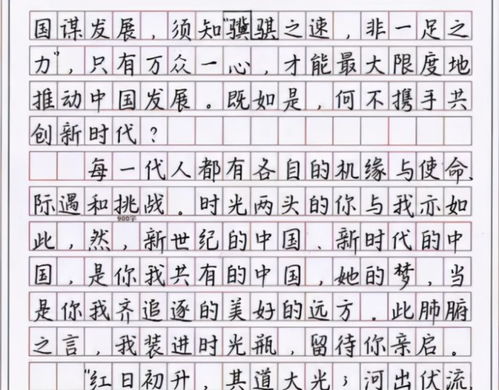 国谋发展，须知“骥骐之速，非一足之
力”，只有万众一心，才能最大限度地
推动中国发展。既如是，何不携手共
创新时代？
每一代人都有各自的机缘与使命，
际遇和挑战。时光两头的你与我亦如
900字
此，然，新世纪的中国、新时代的中
国，是你我共有的中国，她的梦，当
是你我齐追逐的美好的远方。此肺腑
之言，我装进时光瓶，留待你亲启。
“红日初升，其道大光；河出伏流，